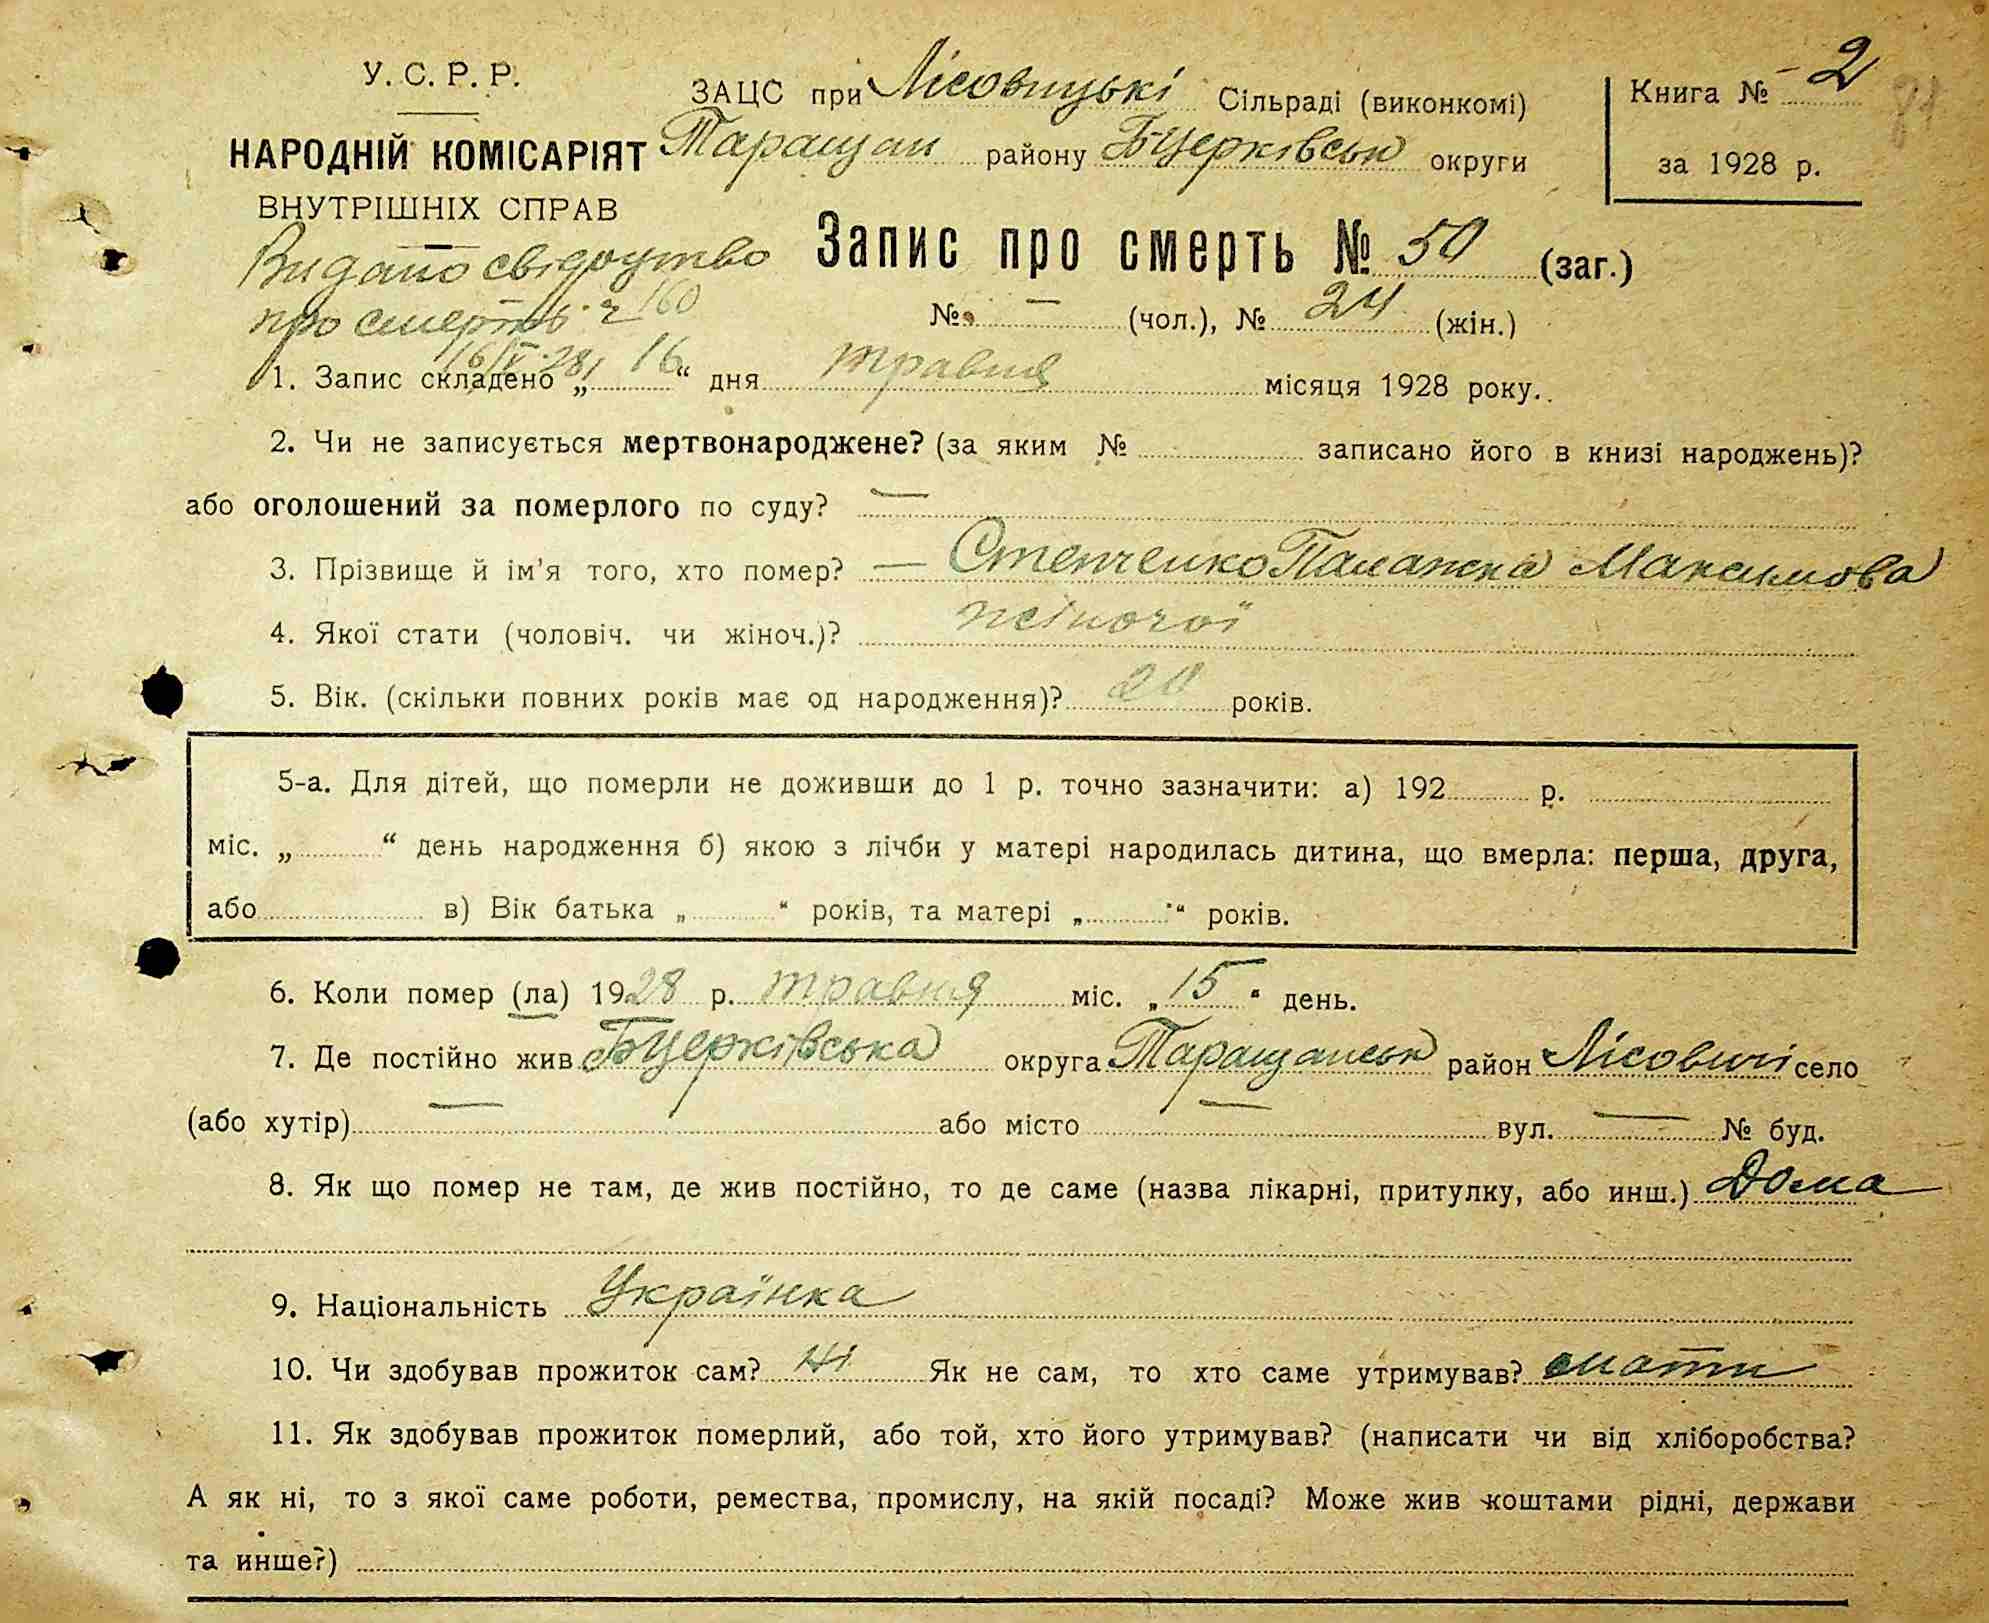 У. С. Р. Р.
НАРОДНІЙ КОМІСАРІЯТ
ВНУТРІШНІХ СПРАВ
ЗАЦС при Лісовицькі Сільраді (виконкомі)
Таращан району Б Церківськ округи
Книга № 2
за 1928 р.
Видано свідоцтво
про смерть ч 160
16/V 28
Запис про смерть № 50 (заг.)
№ — (чол.), № 24 (жін.)
1. Запис складено „ 16 “ дня травня місяця 1928 року.
2. Чи не записується мертвонароджене? (за яким № записано його в книзі народжень)?
або оголошений за померлого по суду? —
3. Прізвище й ім'я того, хто помер? — Степченко Палажка Максимова
4. Якої стати (чоловіч. чи жіноч.)? жіночої
5. Вік. (скільки повних років має од народження)? 20 років.
5-а. Для дітей, що померли не доживши до 1 р. точно зазначити: а) 192 р.
міс. „ “ день народження б) якою з лічби у матері народилась дитина, що вмерла: перша, друга,
або в) Вік батька „ “ років, та матері „ “ років.
6. Коли помер (ла) 1928 р. травня міс. „ 15 “ день.
7. Де постійно жив Б Церківська округа Таращанськ район Лісовичі село
(або хутір) — або місто — вул. — № буд.
8. Як що помер не там, де жив постійно, то де саме (назва лікарні, притулку, або инш.) Дома
9. Національність Українка
10. Чи здобував прожиток сам? ні Як не сам, то хто саме утримував? мати
11. Як здобував прожиток померлий, або той, хто його утримував? (написати чи від хліборобства?
А як ні, то з якої саме роботи, ремества, промислу, на якій посаді? Може жив коштами рідні, держави
та инше?)